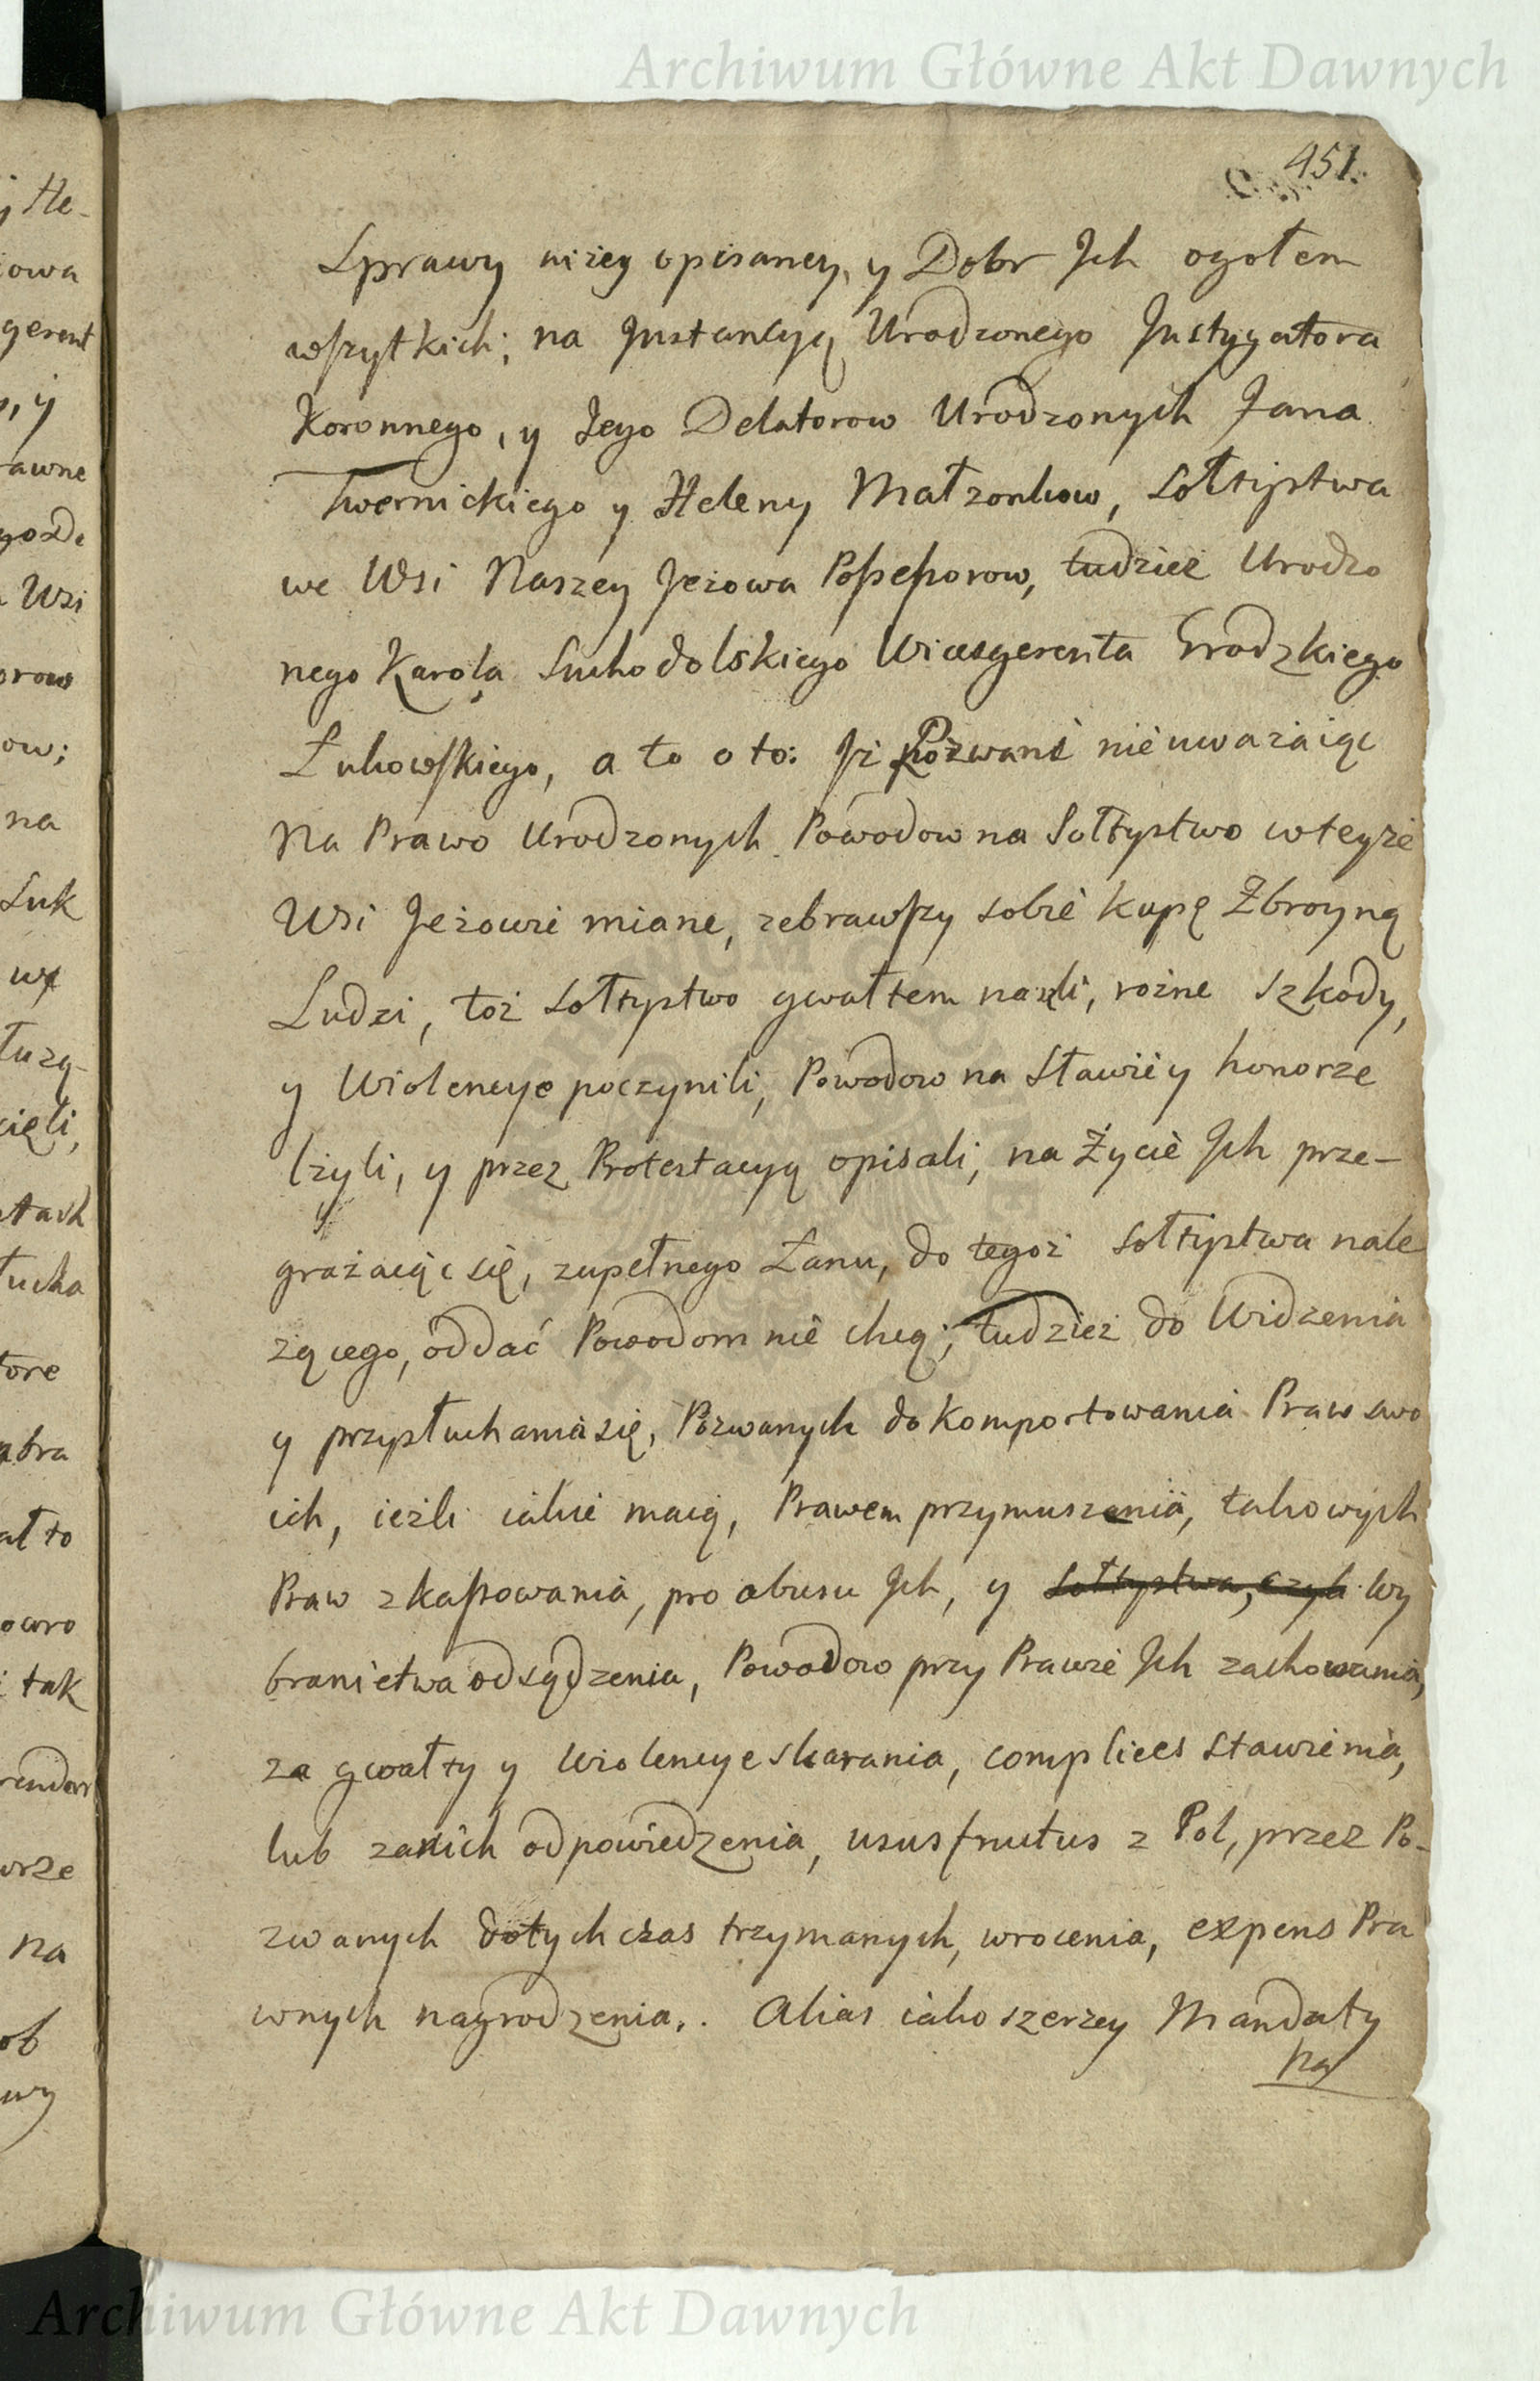 Archiwum Główne Akt Dawnych
451.
Sprawy niżey opisaney, y Dobr Jch ogołem
wszytkich; na Jnstancyą Urodzonego Jnstygatora
Koronnego, y Jego Delatorow Urodzonych Jana
Twernickiego y Heleny Małzonkow, Sołtystwa
we Wsi Naszey Jeżowa Possessorow, tudzież Urodzo
nego Karola Suchodolskiego Vicesgerenta Grodzkiego
Łukowskiego, a to o to: Jż Pozwani nieuważaiąc
Na Prawo Urodzonych Powodow na Sołtystwo wteyże
Wsi Jeżowie miane, zebrawszy sobie kupę Zbroyną
Ludzi, toż Sołtystwo gwałtem naszli, rożne szkody,
y Wiolencye poczynili, Powodow na Sławie y honorze
lżyli, y przez Protestacyą opisali, na Życie Jch prze-
grażaiąc się, zupełnego Łanu, do tegoż Sołtystwa nale
żącego, oddać Powodom nie chcą; tudzież do Widzenia
y przysłuchania się, Pozwanych do Komportowania Praw swo
ich, ieżli iakie maią, Prawem przymuszenia, takowych
Praw zkassowania, pro abusu Jch, y Sołtystwa, czyli Wy
braniectwa odsądzenia, Powodow przy Prawie Jch zachowania,
za gwałty y Wiolencye skarania, complices stawienia,
lub zanich odpowiedzenia, ususfructus z Pol, przez Po-
zwanych dotychczas trzymanych, wrocenia, expens Pra
wnych nagrodzenia,. Alias iako szerzey Mandaty
na
Archiwum Główne Akt Dawnych